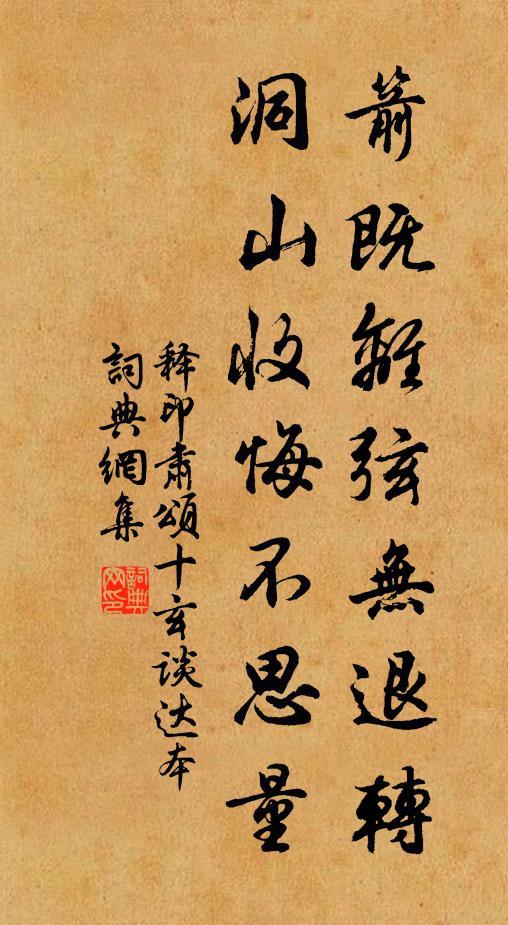 箭既離弦無退轉
洞山收悔不思量
释印肃頌十玄談达本
詞典網集
詞典网印